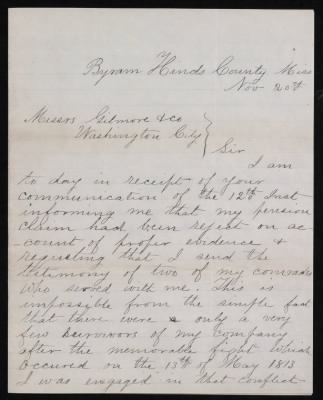 Byram Hinds County Miss
Nov 20th
Messrs Gilmore & co
Washington City
Sir
I am
to day in receipt of your
communication of the 12th Inst
informing me that my pension
claim had been reject on ac
count of proper evidence &
requsting that I send the
testimony of two of my comrades
who served with me. This is
impossible from the simple fact
that there were only a very
few survivors of my company
after the memorable fight which
occured on the 13th of May 1813
I was engaged in that conflict